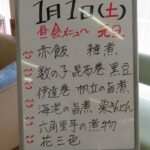 1月1日(土)
昼食メニュー 元日
赤飯 雑煮
数の子 昆布巻 黒豆
伊達巻 帆立の旨煮
海老の旨煮 栗きんとん
六角里芋の煮物
花三色